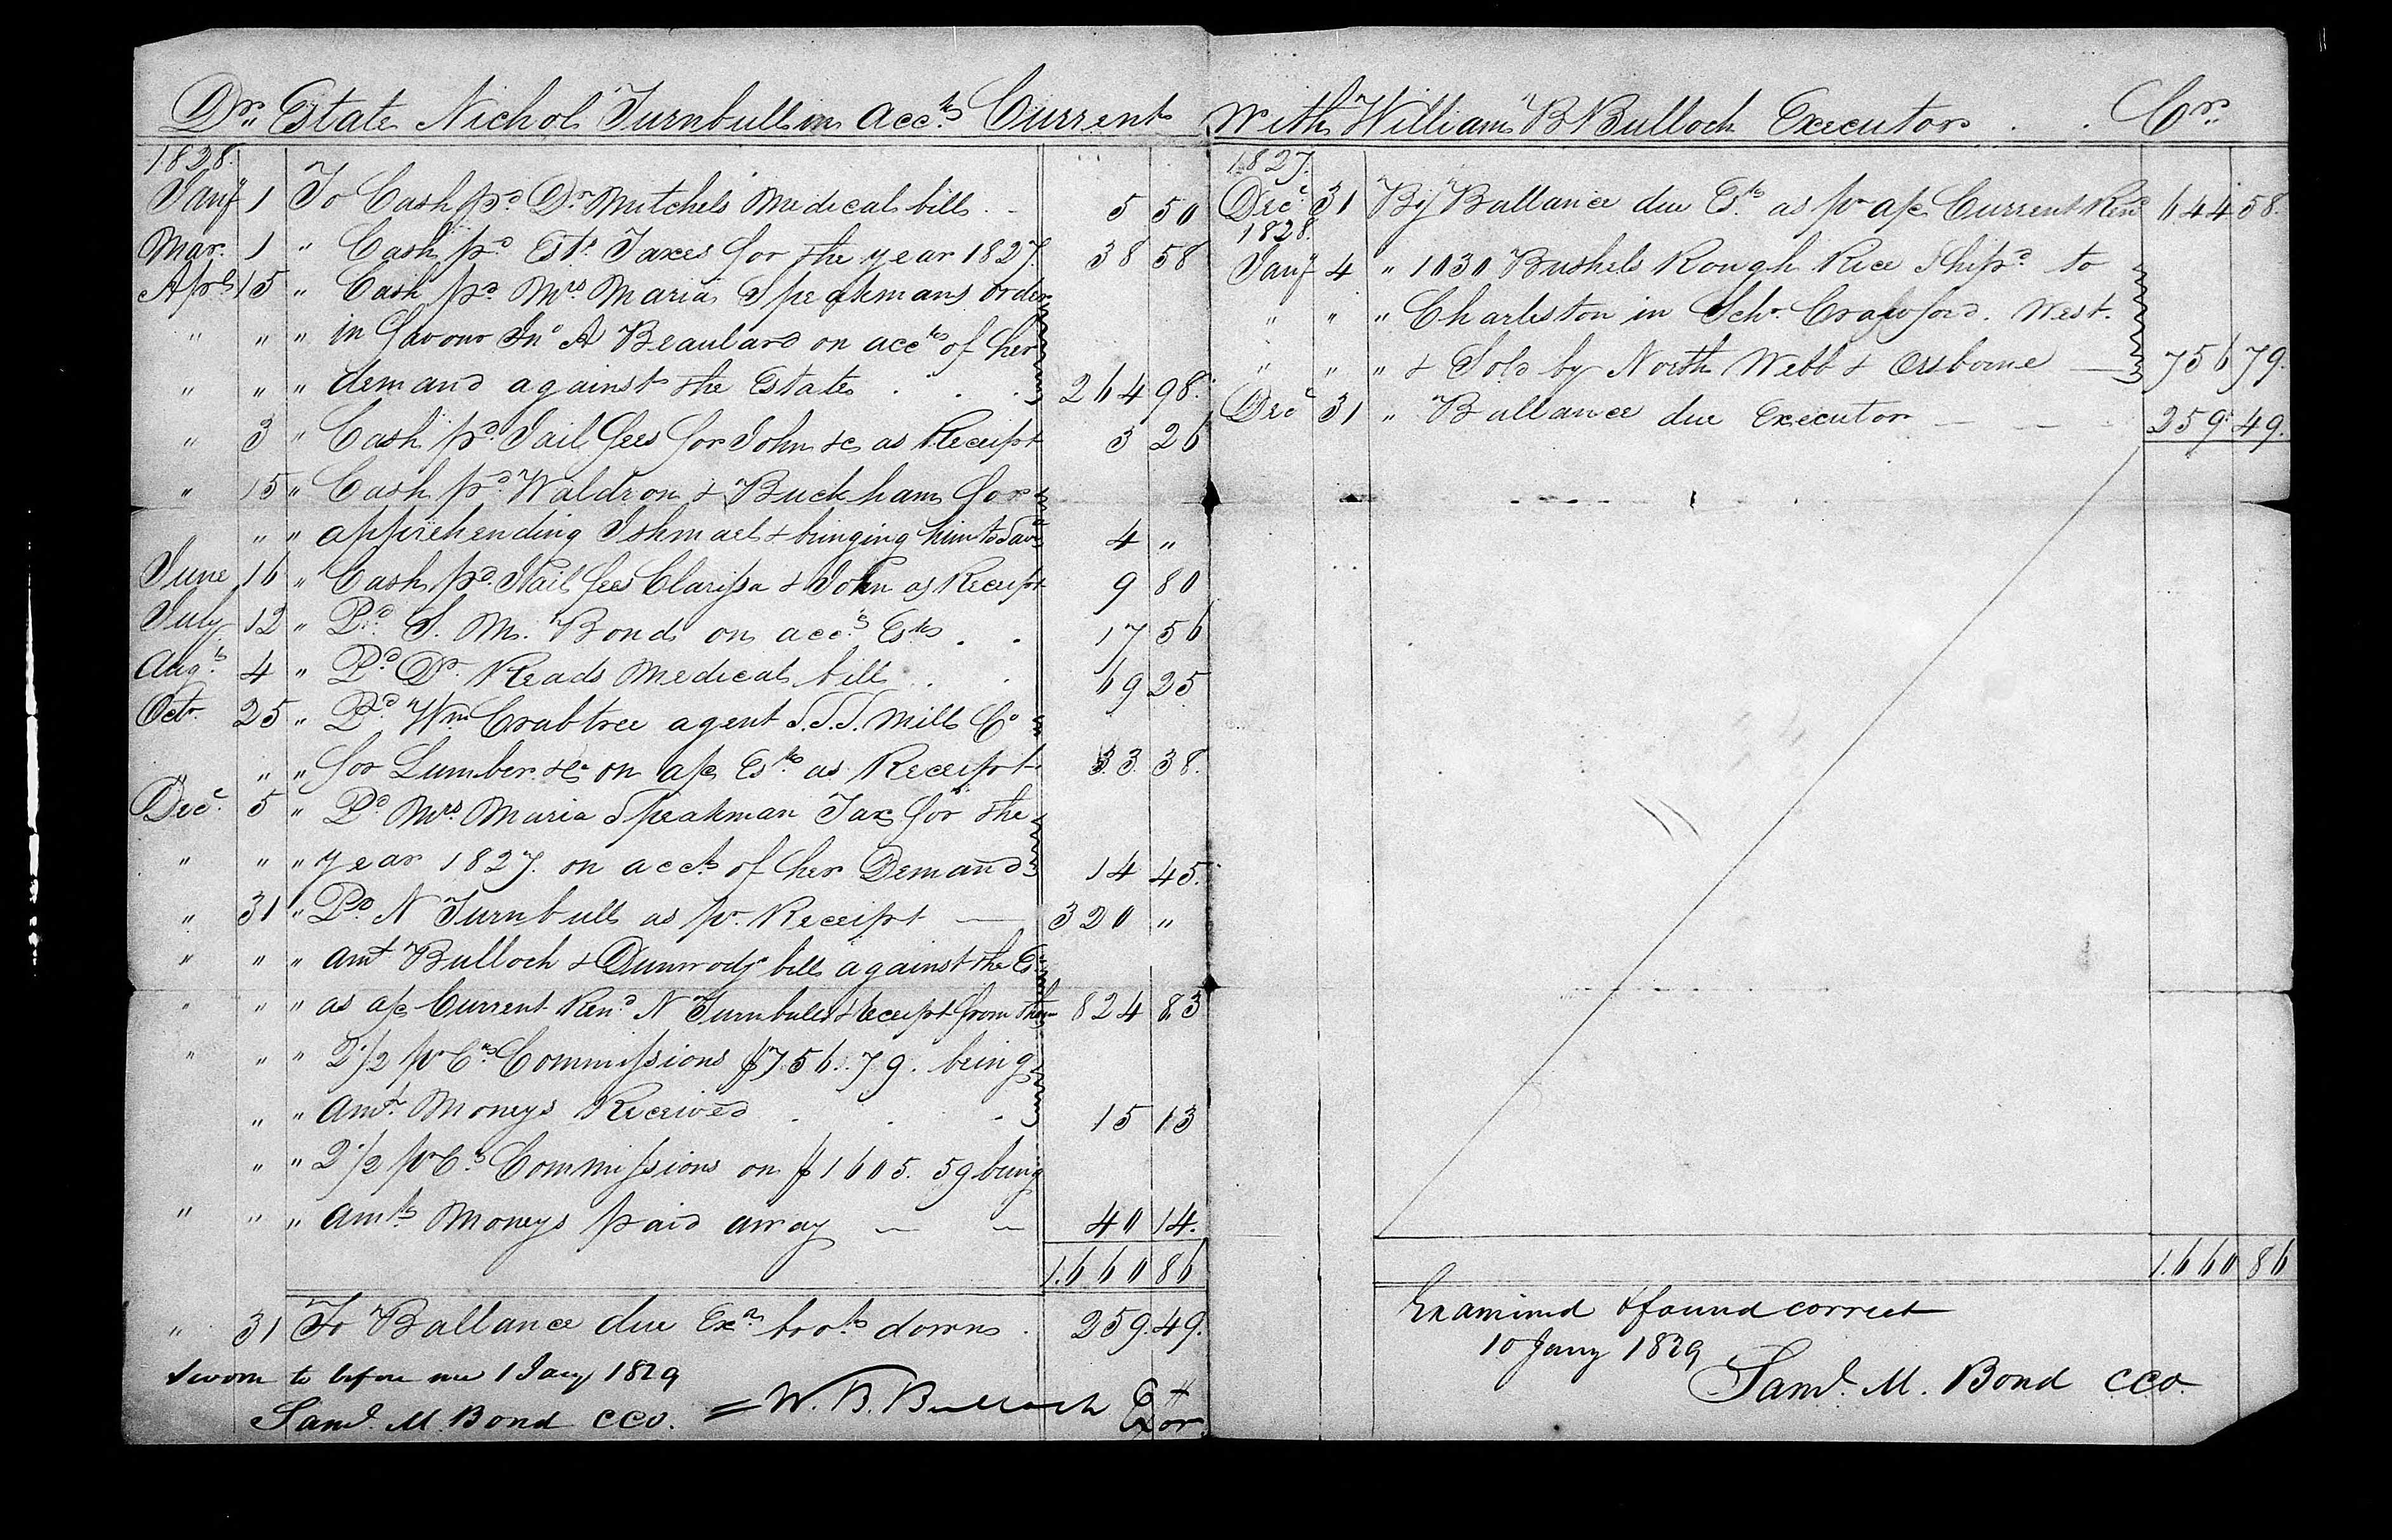 Dr. Estate Nichol Turnbull in Acct. Current with William B Bulloch Executor . . Cr.
1828.
Jany 1 To Cash pd. Dr. Mitchels Medical bill . - 5 50
Mar. 1 " Cash pd. Este. Taxes for the year 1827. 38 58
Apl. 15 " Cash pd. Mrs Maria Speakmans order
" " " in favour Jno. A Beaulard on acct. of her
" " " demand against the Estate . . . 264 98.
" 3 " Cash pd. Jail fees for John &c as Receipt 3 26
" 15 " Cash pd. Waldron & Buckham for
" " apprehending Ishmael & bringing him to Sav. 4 "
June 16 " Cash pd. Jail fees Clarissa & John as Receipt 9 80
July 12 " Pd. S. M. Bond on acct. Este . . 17 56
Augt. 4 " Pd. Dr. Reads Medical bill . . 69 25
Oct. 25 " Pd. Wm Crabtree agent S.S.S. Mill Co
" " " for Lumber &c. on a/c Este. as Receipt 33. 38.
Decr. 5 " Pd. Mrs. Maria Speakman Tax for the
" " " year 1827. on acct. of her Demand 14 45.
" 31 " Pd. N Turnbull as pr. Receipt — 320 "
" " " amt Bulloch & Dunwodys bill against the Es.
" " " as a/c Current Rend. N Turnbull & Receipt from them 824 83
" " " 2 1/2 pr Ct. Commissions $756.79. being
" " amt. Moneys Received . . - 15 13
" " 2 1/2 pr Ct. Commissions on $1605. 59 being
" " " amt. Moneys paid away — — 40 14.
1.660 86
" 31 To Ballance due Exr. brot. down . 259.49.
Sworn to before me 1 Jany 1829
Saml. M. Bond CCO. = W. B. Bulloch Exor
1827.
Decr. 31 By Ballance due Este. as pr a/c Current Rend 644 58.
1828.
Jany 4 " 1030 Bushels Rough Rice Shipd. to
" " " Charleston in Schr. Crawford. West.
" " " & Sold by North Webb & Osborne — 756 79.
Decr 31 " Ballance due Executor — — - 259. 49.
1.660 86
Examined & found correct
10 Jany 1829
Saml. M. Bond CCO.